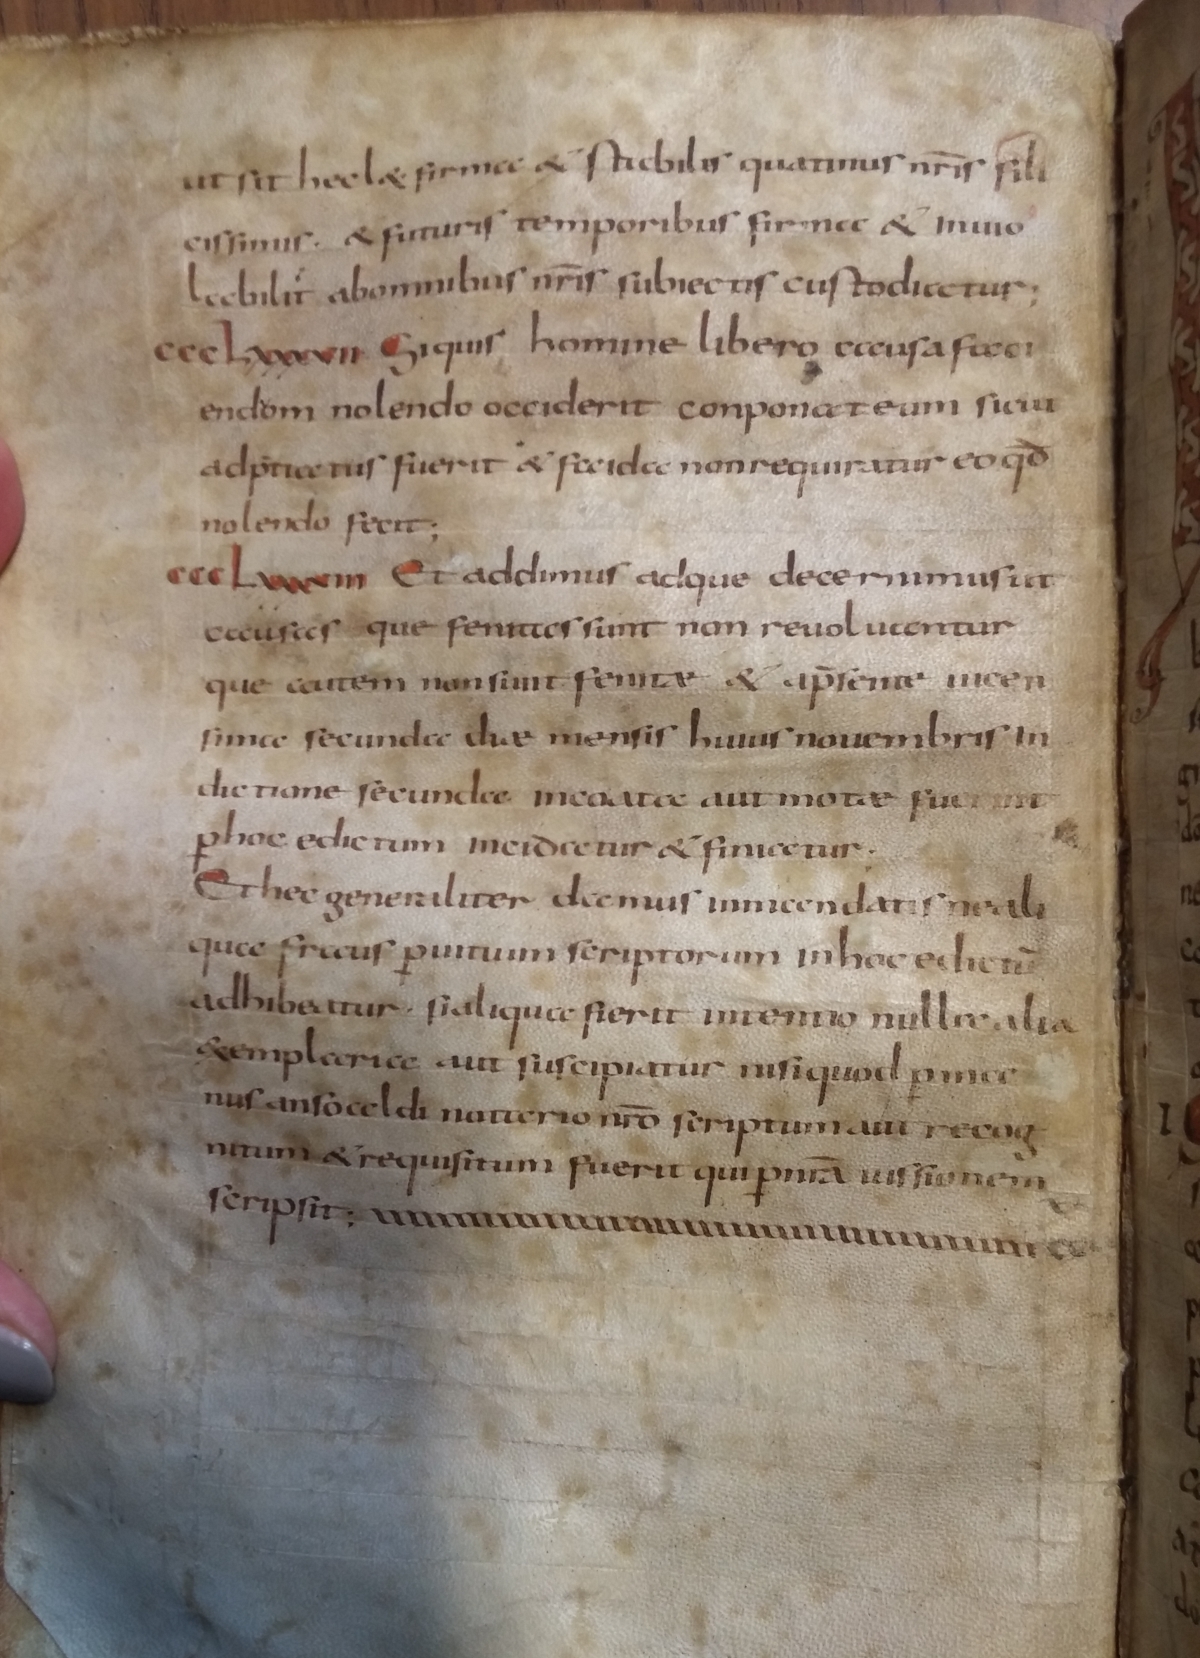 ut sit hec lex firma & stabilis quatinus nr̄is fili
cissimis. & futuris temporibus firma & inuio
labilit̄ abomnibus nr̄is subiectis custodiatur;
ccclxxxvii Siquis homine libero causa faci
endom nolendo occiderit conponat eum sicut
adp̄tiatus fuerit & faida non requiratur eo qđ
nolendo fecit;
ccclxxxviii Et addimus adque decernimus ut
causas que fenitas sunt non reuoluantur
que autem non sunt fenitæ & ap̄sente uicen
sima secunda diæ mensis huius nouembris in
dictione secunda incoatæ aut motæ fuerint
ꝑhoc edictum incidatur & finiatur.
Et hec generaliter damus in mandatis ne ali
qua fraus ꝑ uitium scriptorum in hoc edictū
adhibeatur. si aliqua fierit intentio nulla alia
&emplaria aut suscipiatur nisi quod ꝑ ma
nus ansoaldi notterio nr̄o scriptum aut recog
nitum & requisitum fuerit qui ꝑ nr̄ā iussionem
scripsit;